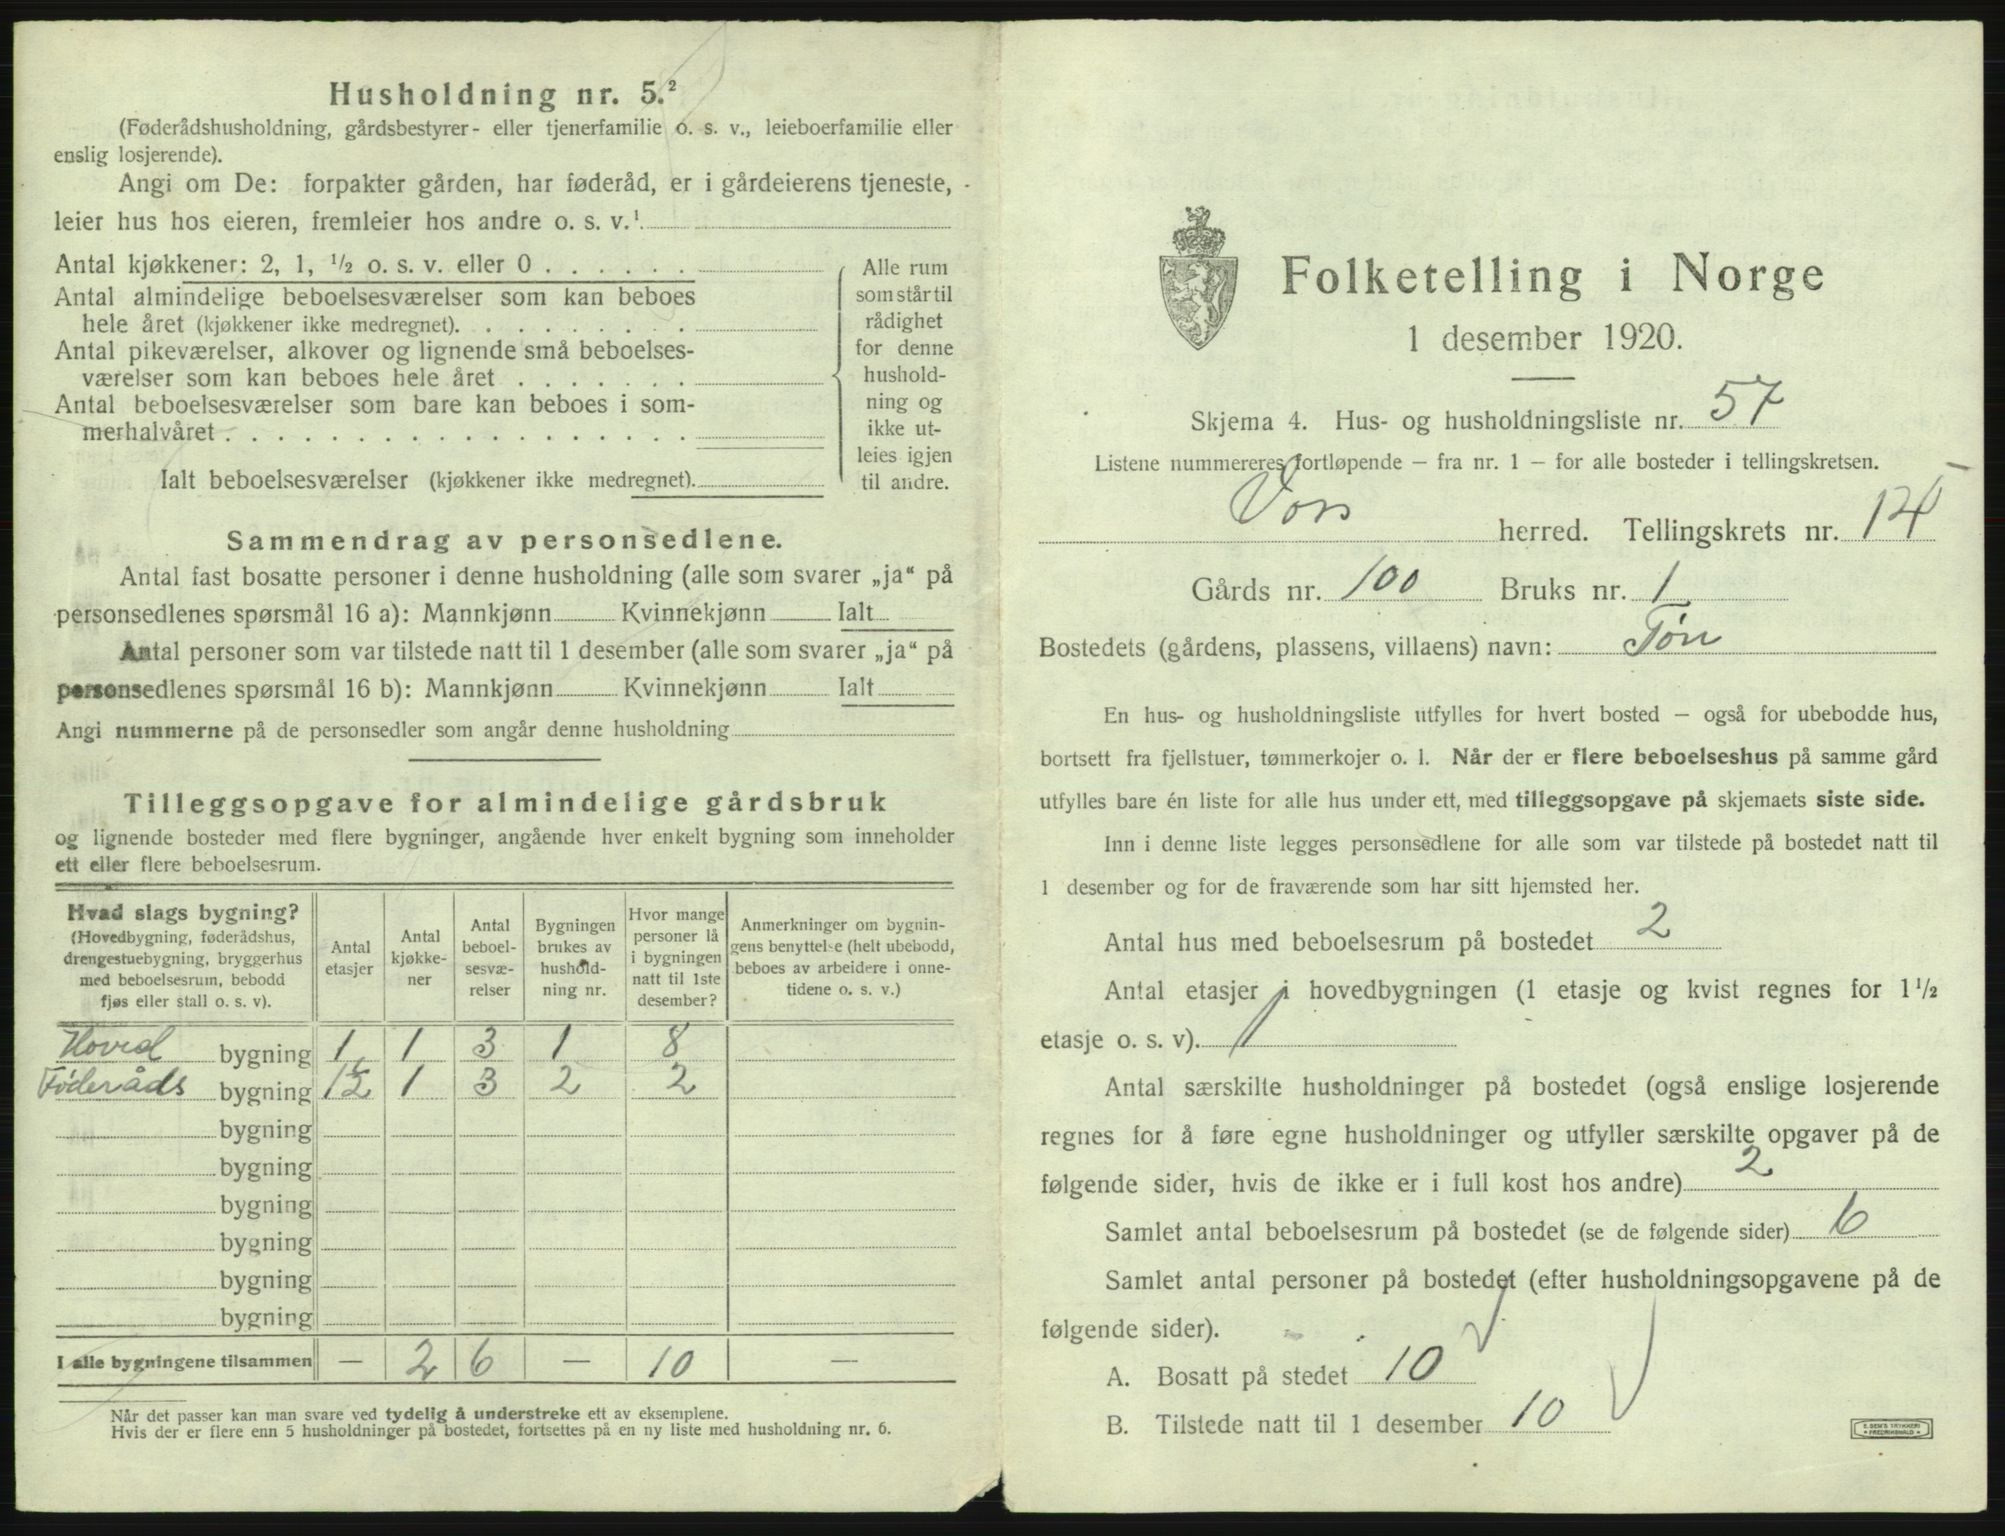 Husholdning nr. 5.²
(Føderådshusholdning, gårdsbestyrer- eller tjenerfamilie o. s. v., leieboerfamilie eller
enslig losjerende).
Angi om De: forpakter gården, har føderåd, er i gårdeierens tjeneste,
leier hus hos eieren, fremleier hos andre o. s. v.¹
Antal kjøkkener: 2, 1, ¹/₂ o. s. v. eller 0
Antal almindelige beboelsesværelser som kan beboes
hele året (kjøkkener ikke medregnet).
Antal pikeværelser, alkover og lignende små beboelses-
værelser som kan beboes hele året
Antal beboelsesværelser som bare kan beboes i som-
merhalvåret
Ialt beboelsesværelser (kjøkkener ikke medregnet).
Alle rum
som står til
rådighet
for denne
hushold-
ning og
ikke ut-
leies igjen
til andre.
Sammendrag av personsedlene.
Antal fast bosatte personer i denne husholdning (alle som svarer „ja“ på
personsedlenes spørsmål 16 a): Mannkjønn Kvinnekjønn Ialt
Antal personer som var tilstede natt til 1 desember (alle som svarer „ja“ på
personsedlenes spørsmål 16 b): Mannkjønn Kvinnekjønn Ialt
Angi nummerne på de personsedler som angår denne husholdning
Tilleggsopgave for almindelige gårdsbruk
og lignende bosteder med flere bygninger, angående hver enkelt bygning som inneholder
ett eller flere beboelsesrum.
Hvad slags bygning?
(Hovedbygning, føderådshus,
drengestuebygning, bryggerhus
med beboelsesrum, bebodd
fjøs eller stall o. s. v).
Antal
etasjer
Antal
kjøkke-
ner
Antal
beboel-
sesvæ-
relser
Bygningen
brukes av
hushold-
ning nr.
Hvor mange
personer lå
i bygningen
natt til 1ste
desember?
Anmerkninger om bygnin-
gens benyttelse (helt ubebodd,
beboes av arbeidere i onne-
tidene o. s. v.)
Hoved bygning 1 1 3 1 8
Føderåds bygning 1½ 1 3 2 2
bygning
bygning
bygning
bygning
bygning
bygning
I alle bygningene tilsammen — 2 6 — 10 —
Når det passer kan man svare ved tydelig å understreke ett av eksemplene.
Hvis der er flere enn 5 husholdninger på bostedet, fortsettes på en ny liste med husholdning nr. 6.
Folketelling i Norge
1 desember 1920.
Skjema 4. Hus- og husholdningsliste nr. 57
Listene nummereres fortløpende — fra nr. 1 — for alle bosteder i tellingskretsen.
Voss herred. Tellingskrets nr. 14
Gårds nr. 100 Bruks nr. 1
Bostedets (gårdens, plassens, villaens) navn: Tøn
En hus- og husholdningsliste utfylles for hvert bosted — også for ubebodde hus,
bortsett fra fjellstuer, tømmerkojer o. l. Når der er flere beboelseshus på samme gård
utfylles bare én liste for alle hus under ett, med tilleggsopgave på skjemaets siste side.
Inn i denne liste legges personsedlene for alle som var tilstede på bostedet natt til
1 desember og for de fraværende som har sitt hjemsted her.
Antal hus med beboelsesrum på bostedet 2
Antal etasjer i hovedbygningen (1 etasje og kvist regnes for 1¹/₂
etasje o. s. v). 1
Antal særskilte husholdninger på bostedet (også enslige losjerende
regnes for å føre egne husholdninger og utfyller særskilte opgaver på de
følgende sider, hvis de ikke er i full kost hos andre) 2
Samlet antal beboelsesrum på bostedet (se de følgende sider) 6
Samlet antal personer på bostedet (efter husholdningsopgavene på de
følgende sider).
A. Bosatt på stedet 10
B. Tilstede natt til 1 desember 10